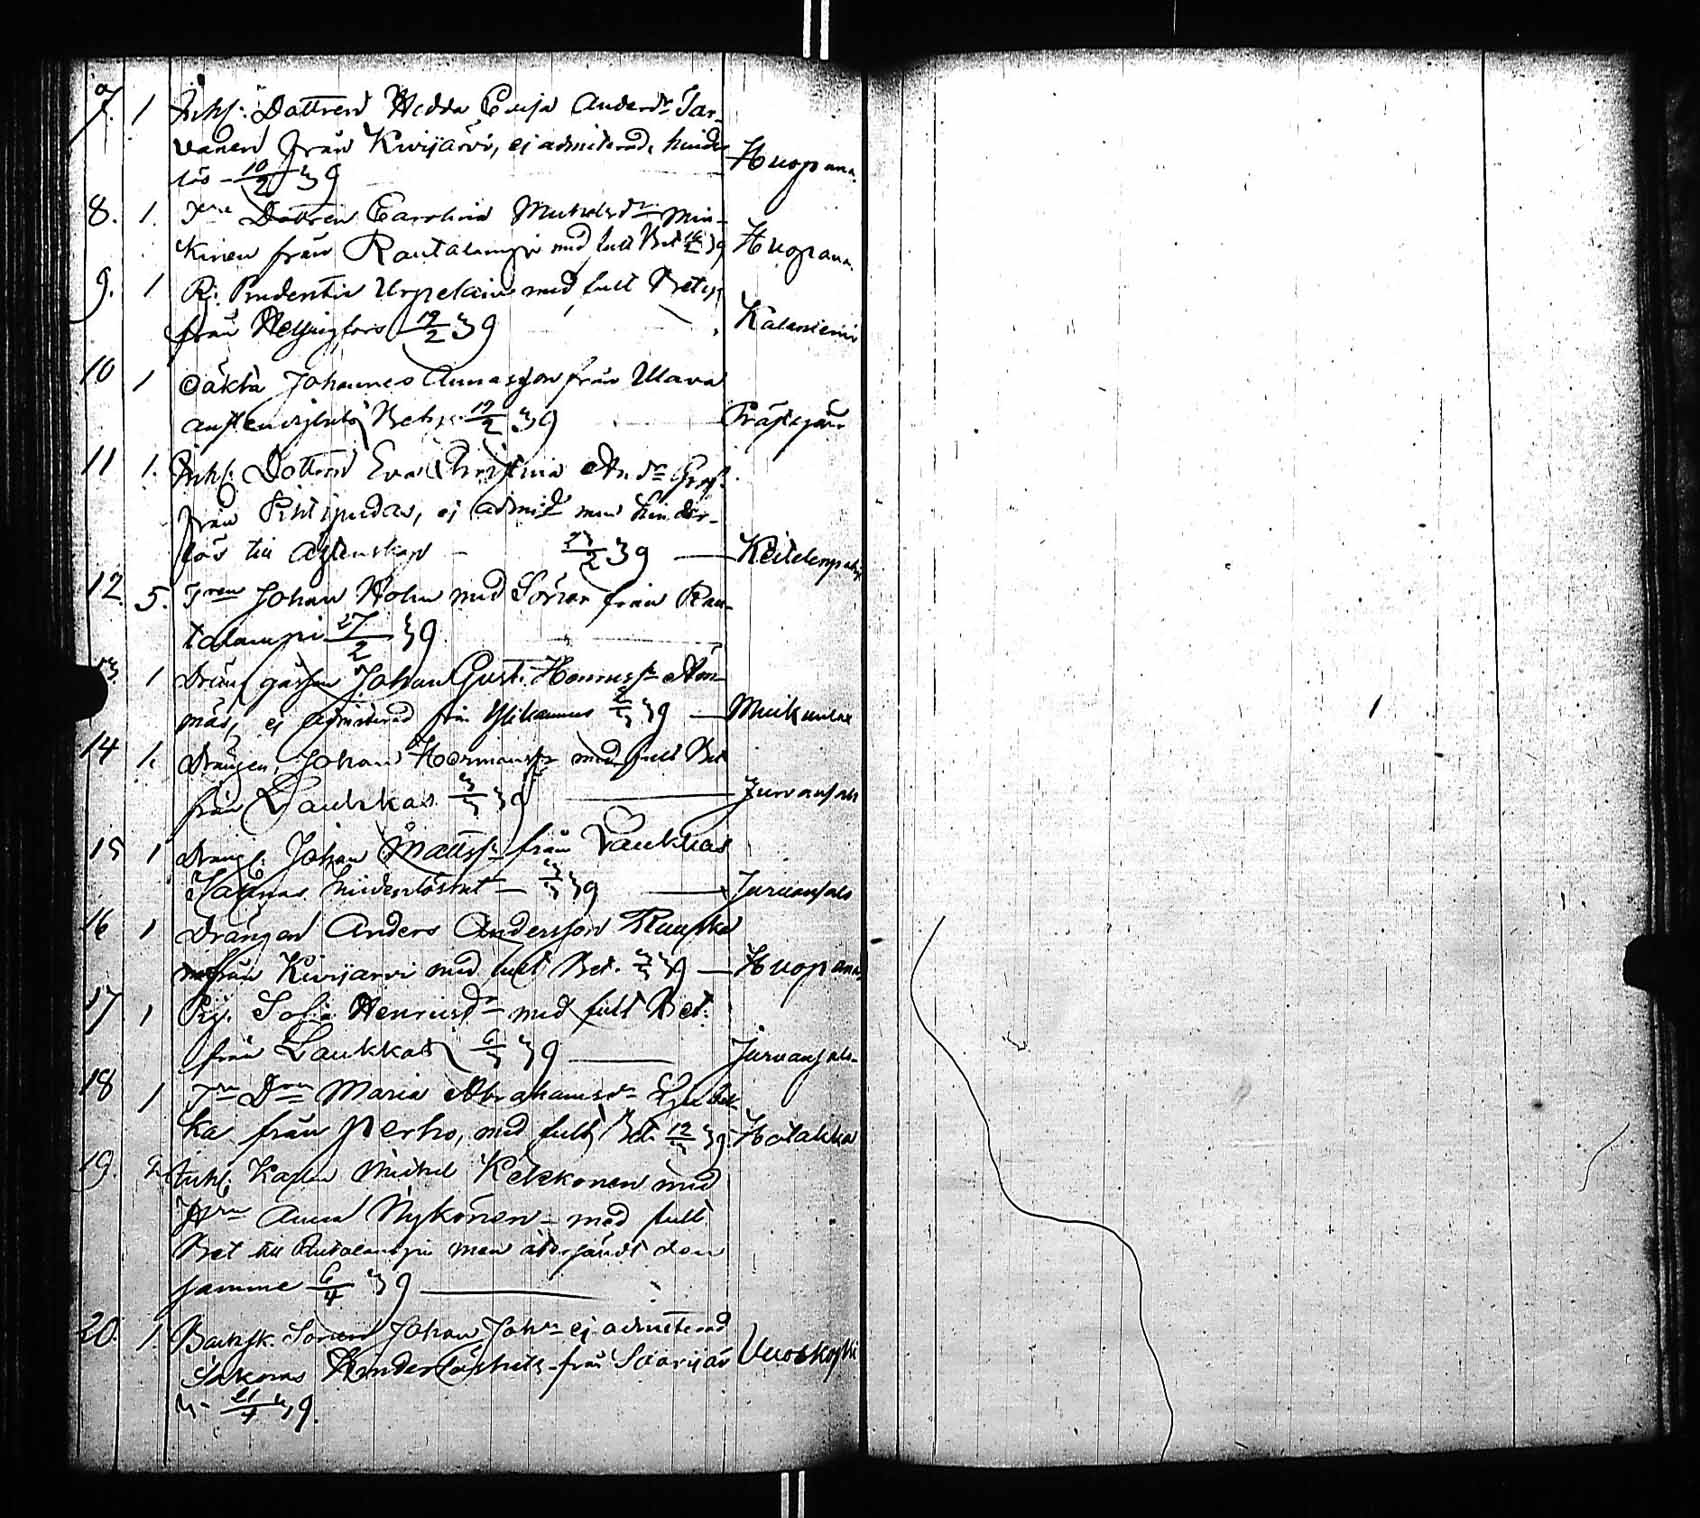 7. 1 Inhs. Dottren Hedda Caisa Andersdr Tar-
vanen från Kivijärvi, ej admitterad, hinder
lös 10/2 39 Huopana.
8. 1. Dottren Carolina Michelsdr Min-
kinen från Rautalampi med fullt Bet 39 Huopana.
9. 1 Pi. Prudentia Urpelain med fullt Betyg
från Helsingfors 19/2 39 Kalaniemi
10 1 Oäkta Johannes från Ulava
Betyg 19/2 39 Prästgård
11 1. Inhs. Dottren Eva Christina Andr
från Pihtipudas, ej admit men hinder-
lös till Äktenskap 27/2 39
12. 5. Johan Holm med Sönar från Rau-
talampi 27/2 39
13. 1 Dräng gåssen Johan Gust. Henricss
ej admitterad från 39
14 1. Drängen Johan Hermanss med fullt Bet
från Laukkas 3/3 39 Jurvansalo
15 1 Drängs. Johan Mattss från Laukkas
Saknas hinderlöshet 3/3 39 Jurvansalo
16 1 Drängen Anders Andersson
från Kivijärvi med fullt Bet. 39 Huopana
17 1 Pig. Sofia Henricsdr med fullt Bet.
från Laukkas 6/3 39 Jurvansalo
18 1 Maria Abrahamsdr
ka från Perho, med fullt Bet. 12/3 39 Hotakka
19. 2 Inhs. Karlen Michel Kekkonen med
Anna Nykänen med fullt
Bet till Rautalampi men återsändt den
samme 6/4 39
20. 1. Backsk. Sonen Johan Johss ej admitterad
Saknas Hinderlöshets från Saarijär
vi 21/4 39. Vuoskoski